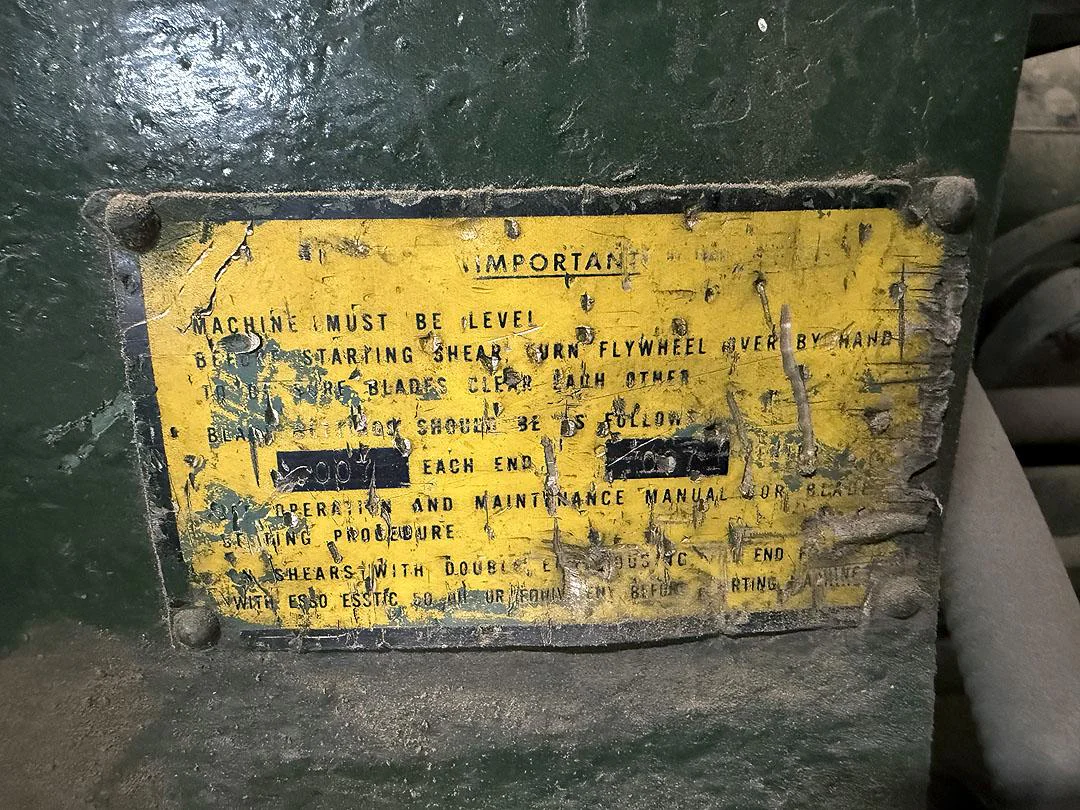 IMPORTANT
MACHINE MUST BE LEVEL
BEFORE STARTING SHEAR TURN FLYWHEEL OVER BY HAND
TO BE SURE BLADES CLEAR EACH OTHER
BLADE SHOULD BE AS FOLLOWS
EACH END
OPERATION AND MAINTENANCE MANUAL FOR BLADE
SETTING PROCEDURE
SHEARS WITH DOUBLE HOUSING END
WITH ESSO ESSTIC 50 OIL OR EQUIVALENT BEFORE STARTING MACHINE